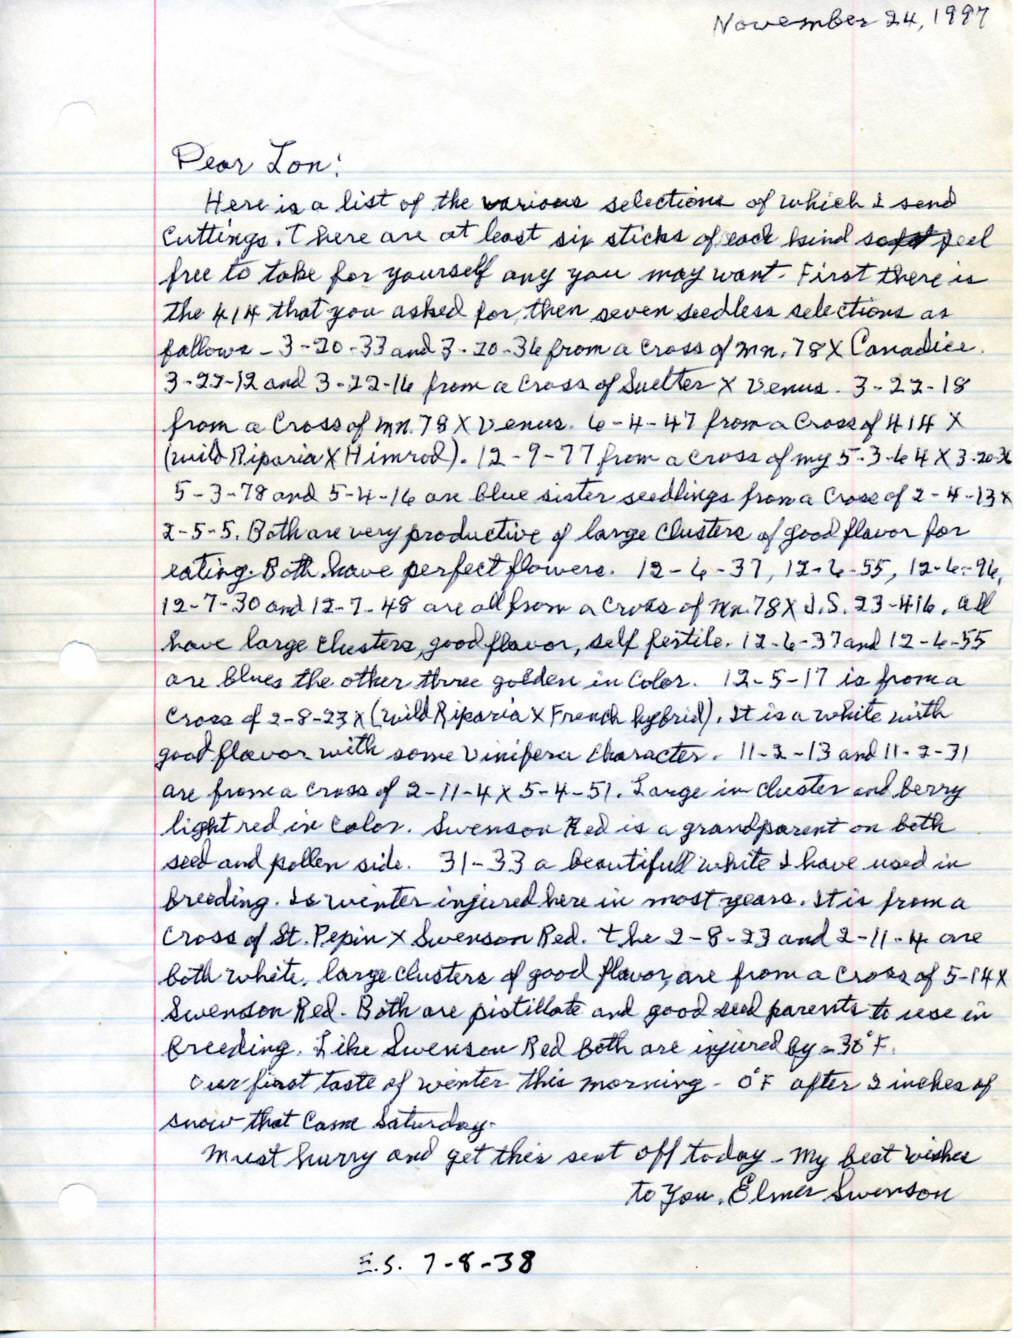 November 24, 1997
Dear Lon:
Here is a list of the various selections of which I send
cuttings. There are at least six sticks of each kind so feel
free to take for yourself any you may want. First there is
the 414 that you asked for, then seven seedless selections as
follows - 3-20-33 and 3-20-36 from a cross of mn. 78 X Canadice.
3-22-12 and 3-22-16 from a cross of Suelter X Venus. 3-22-18
from a Cross of mn. 78 X Venus. 6-4-47 from a Cross of 414 X
(wild Riparia X Himrod). 12-9-77 from a cross of my 5-3-64 X 3-20-36
5-3-78 and 5-4-16 are blue sister seedlings from a Cross of 2-4-13 X
2-5-5. Both are very productive of large clusters of good flavor for
eating. Both have perfect flowers. 12-6-37, 12-6-55, 12-6-96,
12-7-30 and 12-7-48 are all from a Cross of Mn. 78 X J.S. 23-416. All
have large clusters, good flavor, self fertile. 12-6-37 and 12-6-55
are blues the other three golden in color. 12-5-17 is from a
Cross of 2-8-23 X (wild Riparia X French hybrid). It is a white with
good flavor with some Vinifera character. 11-2-13 and 11-2-31
are from a cross of 2-11-4 X 5-4-51. Large in cluster and berry
light red in color. Swenson Red is a grandparent on both
seed and pollen side. 31-33 a beautifull white I have used in
breeding. Is winter injured here in most years. It is from a
Cross of St. Pepin X Swenson Red. The 2-8-23 and 2-11-4 are
both white, large clusters of good flavor, are from a cross of 5-14 X
Swenson Red. Both are pistillate and good seed parents to use in
breeding. Like Swenson Red both are injured by -30°F.
Our first taste of winter this morning - 0°F after 2 inches of
snow that came Saturday.
Must hurry and get this sent off today - My best wishes
to you. Elmer Swenson
E.S. 7-8-38